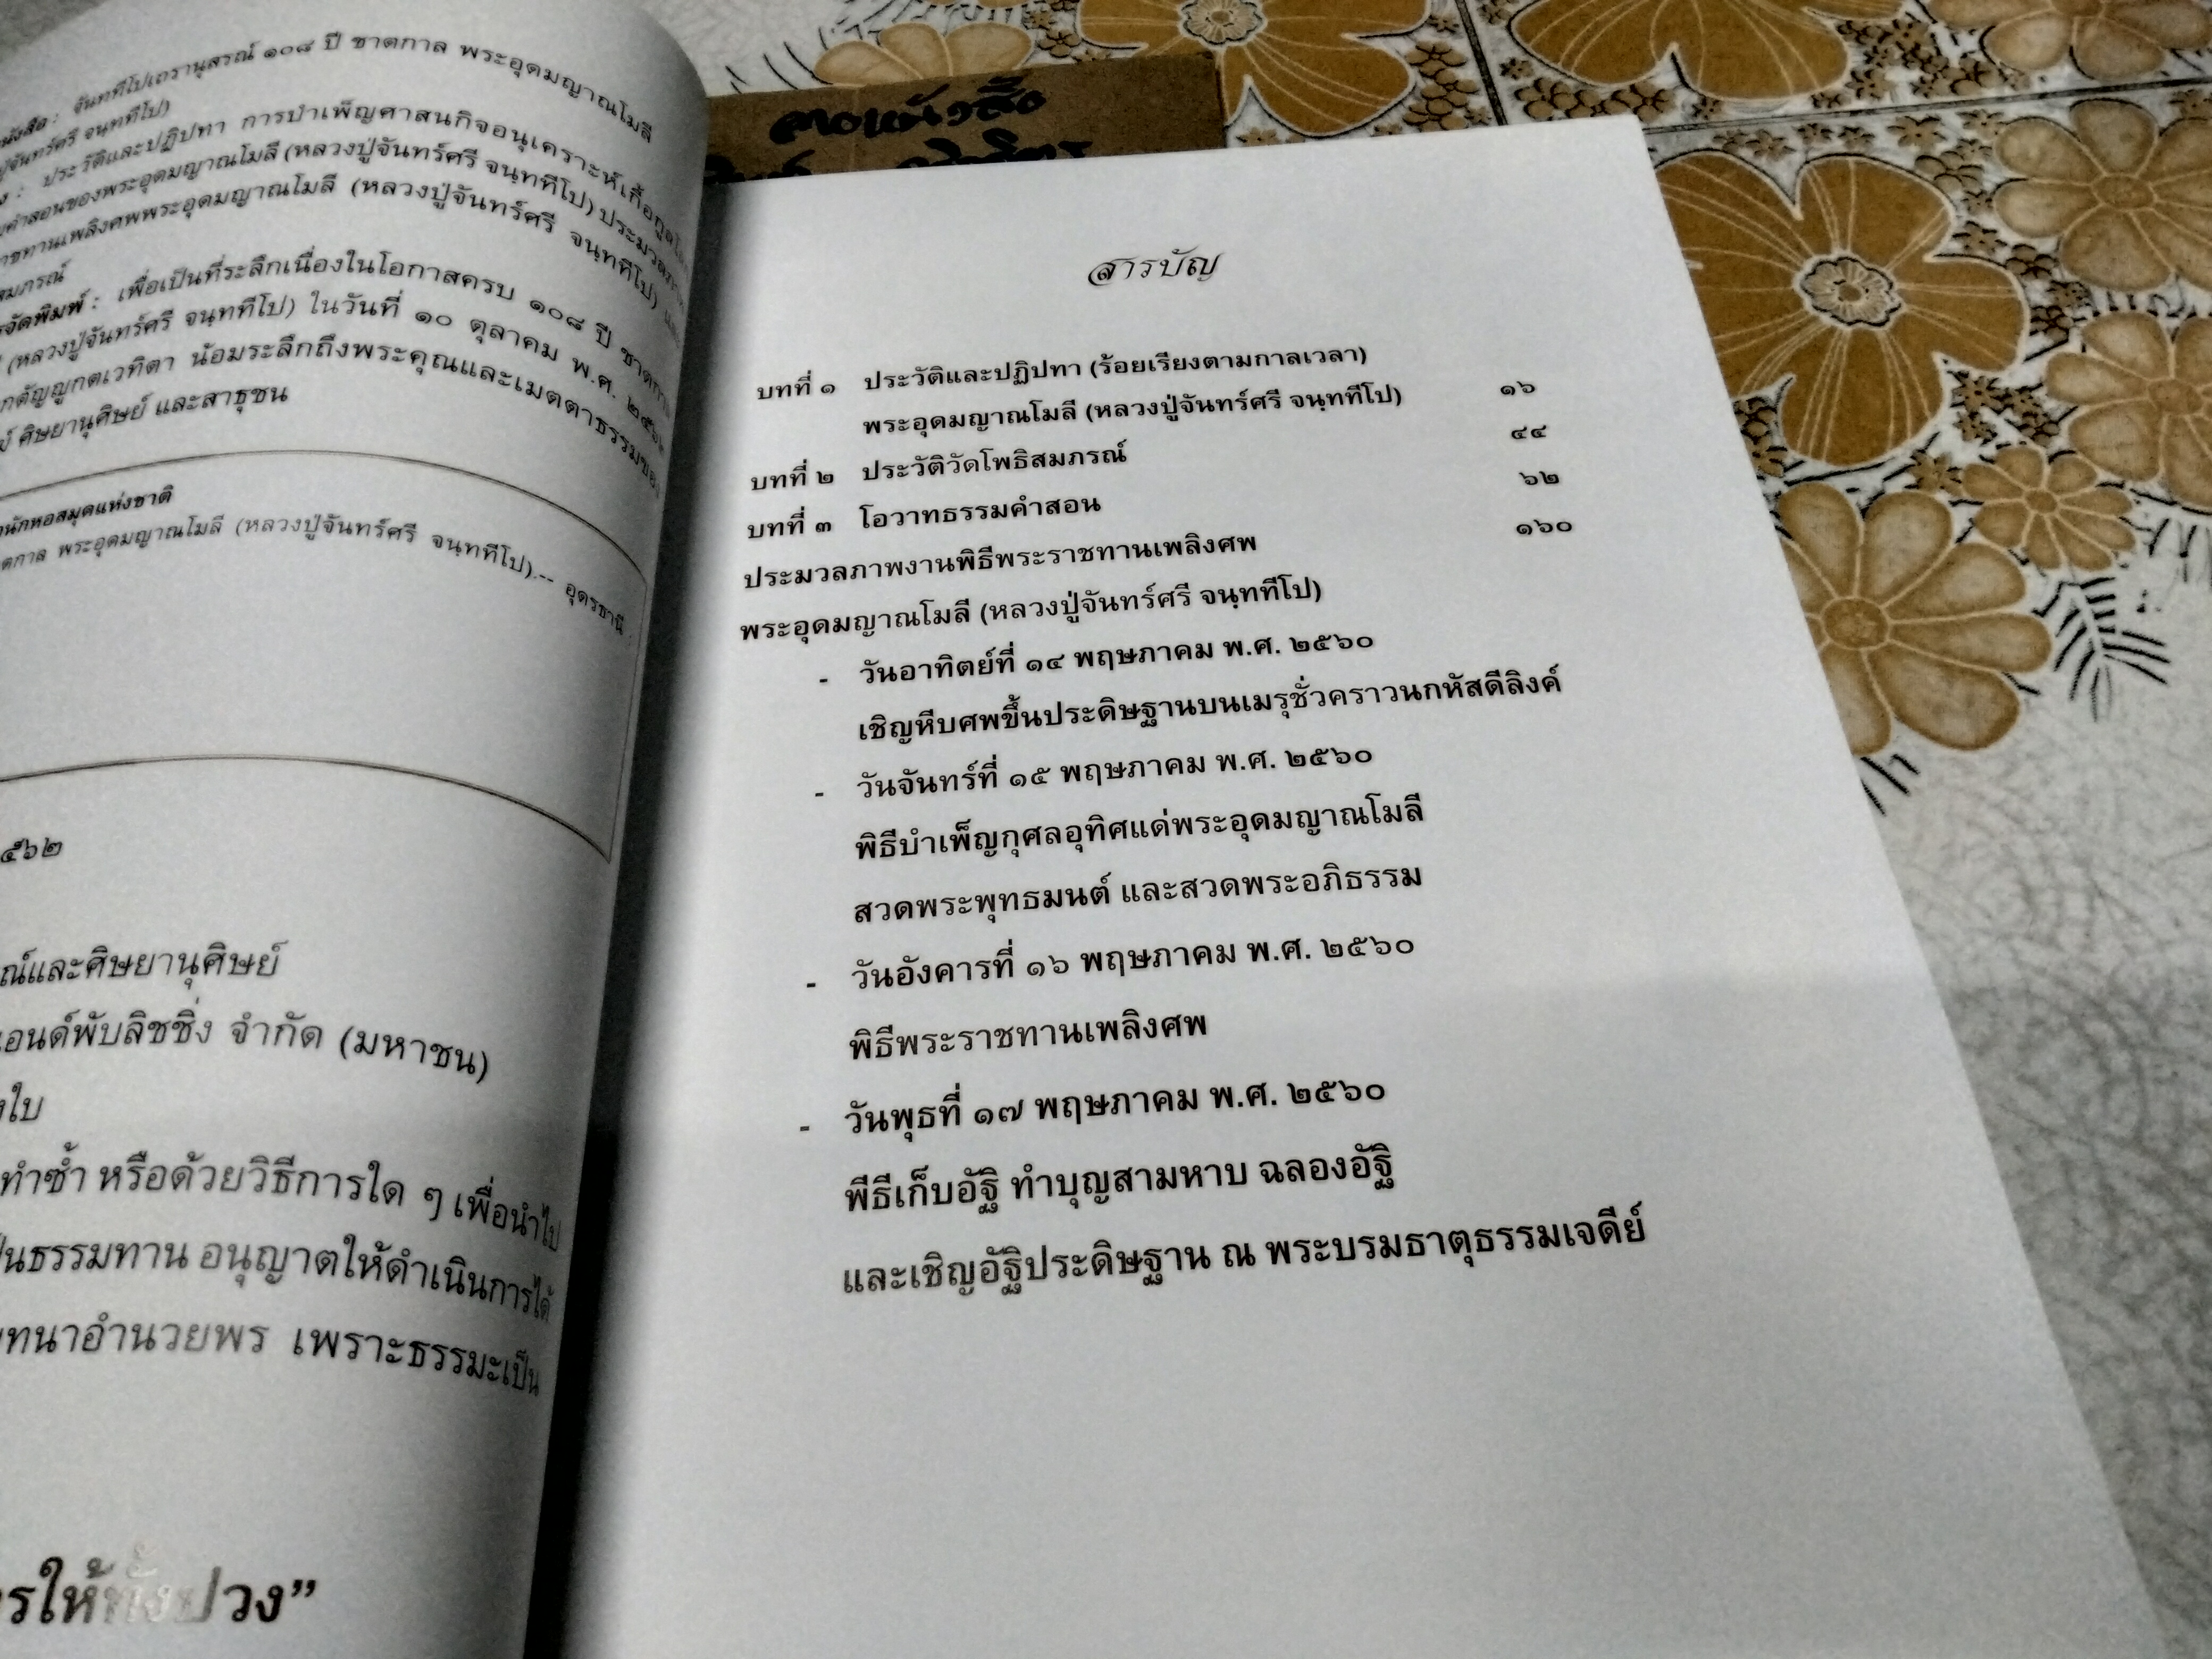 จันททีโปเถรานุสรณ์ ๑๐๘ ปี ชาตกาล พระอุดมญาณโมลี
จันทร์ศรี จนฺททีโป)
ประวัติและปฏิปทา การบำเพ็ญศาสนกิจอนุเคราะห์เกื้อกูล
คำสอนของพระอุดมญาณโมลี (หลวงปู่จันทร์ศรี จนฺททีโป) ประมวลภาพ
ทานเพลิงศพพระอุดมญาณโมลี (หลวงปู่จันทร์ศรี จนฺททีโป)
สมภรณ์
จัดพิมพ์ : เพื่อเป็นที่ระลึกเนื่องในโอกาสครบ ๑๐๘ ปี ชาตกาล
(หลวงปู่จันทร์ศรี จนฺททีโป) ในวันที่ ๑๐ ตุลาคม พ.ศ. ๒๕๖๒
กตัญญูกตเวทิตา น้อมระลึกถึงพระคุณและเมตตาธรรมของ
ศิษยานุศิษย์ และสาธุชน
นักหอสมุดแห่งชาติ
ตกาล พระอุดมญาณโมลี (หลวงปู่จันทร์ศรี จนฺททีโป).-- อุดรธานี :
๕๖๒
ณ์และศิษยานุศิษย์
แอนด์พับลิชชิ่ง จำกัด (มหาชน)
ใบ
ทำซ้ำ หรือด้วยวิธีการใด ๆ เพื่อนำไป
ป็นธรรมทาน อนุญาตให้ดำเนินการได้
ทนาอำนวยพร เพราะธรรมะเป็น
รให้ทั้งปวง”
สารบัญ
บทที่ ๑ ประวัติและปฏิปทา (ร้อยเรียงตามกาลเวลา)
พระอุดมญาณโมลี (หลวงปู่จันทร์ศรี จนฺททีโป) ๑๖
บทที่ ๒ ประวัติวัดโพธิสมภรณ์ ๔๔
บทที่ ๓ โอวาทธรรมคำสอน ๖๒
ประมวลภาพงานพิธีพระราชทานเพลิงศพ ๑๖๐
พระอุดมญาณโมลี (หลวงปู่จันทร์ศรี จนฺททีโป)
- วันอาทิตย์ที่ ๑๔ พฤษภาคม พ.ศ. ๒๕๖๐
เชิญหีบศพขึ้นประดิษฐานบนเมรุชั่วคราวนกหัสดีลิงค์
- วันจันทร์ที่ ๑๕ พฤษภาคม พ.ศ. ๒๕๖๐
พิธีบำเพ็ญกุศลอุทิศแด่พระอุดมญาณโมลี
สวดพระพุทธมนต์ และสวดพระอภิธรรม
- วันอังคารที่ ๑๖ พฤษภาคม พ.ศ. ๒๕๖๐
พิธีพระราชทานเพลิงศพ
- วันพุธที่ ๑๗ พฤษภาคม พ.ศ. ๒๕๖๐
พีธีเก็บอัฐิ ทำบุญสามหาบ ฉลองอัฐิ
และเชิญอัฐิประดิษฐาน ณ พระบรมธาตุธรรมเจดีย์